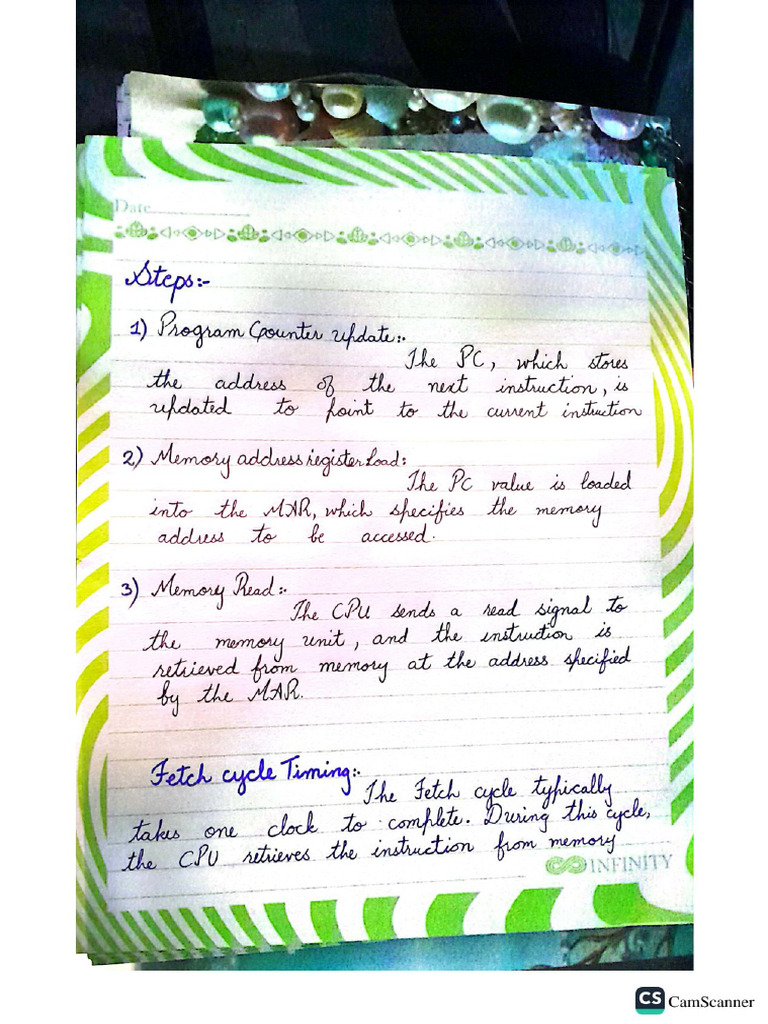 Date
Steps:-
1) Program Counter update:-
The PC, which stores
the address of the next instruction, is
updated to point to the current instruction
2) Memory address register Load:
The PC value is loaded
into the MAR, which specifies the memory
address to be accessed.
3) Memory Read:-
The CPU sends a read signal to
the memory unit, and the instruction is
retrieved from memory at the address specified
by the MAR.
Fetch cycle Timing:-
The Fetch cycle typically
takes one clock to complete. During this cycle,
the CPU retrieves the instruction from memory
INFINITY
CS CamScanner